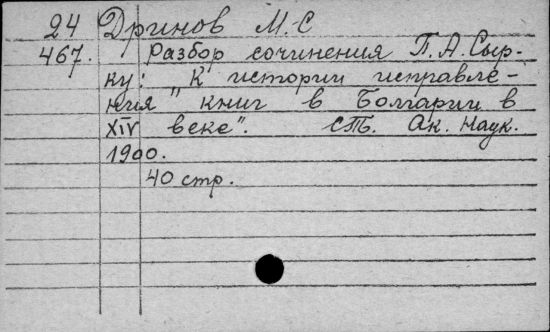 24 Дринов М.С
467. Разбор сочинения П.А.Сыр-
ку: "К истории исправле-
ния книг в Болгарии в
XIV веке". СПб. Ак. Наук.
1900.
40 стр.